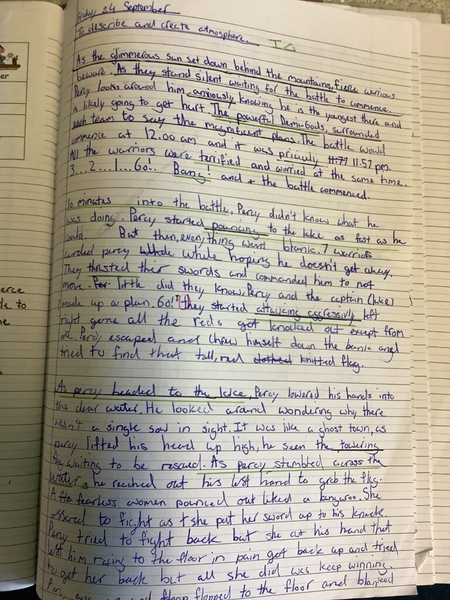 Friday 24 September
To describe and create atmosphere. I △
As the glimmerous sun set down behind the mountains, fierce warriors
beware. As they stand silent waiting for the battle to commence.
Percy looks around him anxiously knowing he is the youngest there and
is likely going to get hurt. The powerful Demi-Gods, surrounded
each team to say the magnificent plans. The battle would
commence at 12.00 am and it was 11.57 pm.
All the warriors were terrified and worried at the same time..
3...2...1...Go!. Bang! and the battle commenced.
10 minutes into the battle, Percy didn't know what he
was doing. Percy started pouncing to the lake as fast as he
could. But then, everything went blank. 7 warriors
percy while hoping he doesn't get away.
They thrusted ther swords and commanded him to not
move. little did they know, Percy and the captain (luke)
made up a plan. Go!" They started attacking aggressivly left
right gone all the reds got knocked out except from
one. Percy escaped and threw himself down the bank and
tried to find that tall, red knitted flag.
As percy headed to the lake, Percy lowered his hands into
the clear water. He looked around wondering why there
wasn't a single saw in sight. It was like a ghost town, as
percy lifted his head up high, he seen the towering
flag waiting to be rescued. As percy stumbled across the
water, he reached out his left hand to grab the flag.
A fearless women pounced out liked a kangaroo. She
offered to fight as she put her sword up to his knuck
Percy tried to fight back but she at his hand that
left him to the floor in pain get back up and tried
to get her back but all she did was keep winning.
flopped to the floor and